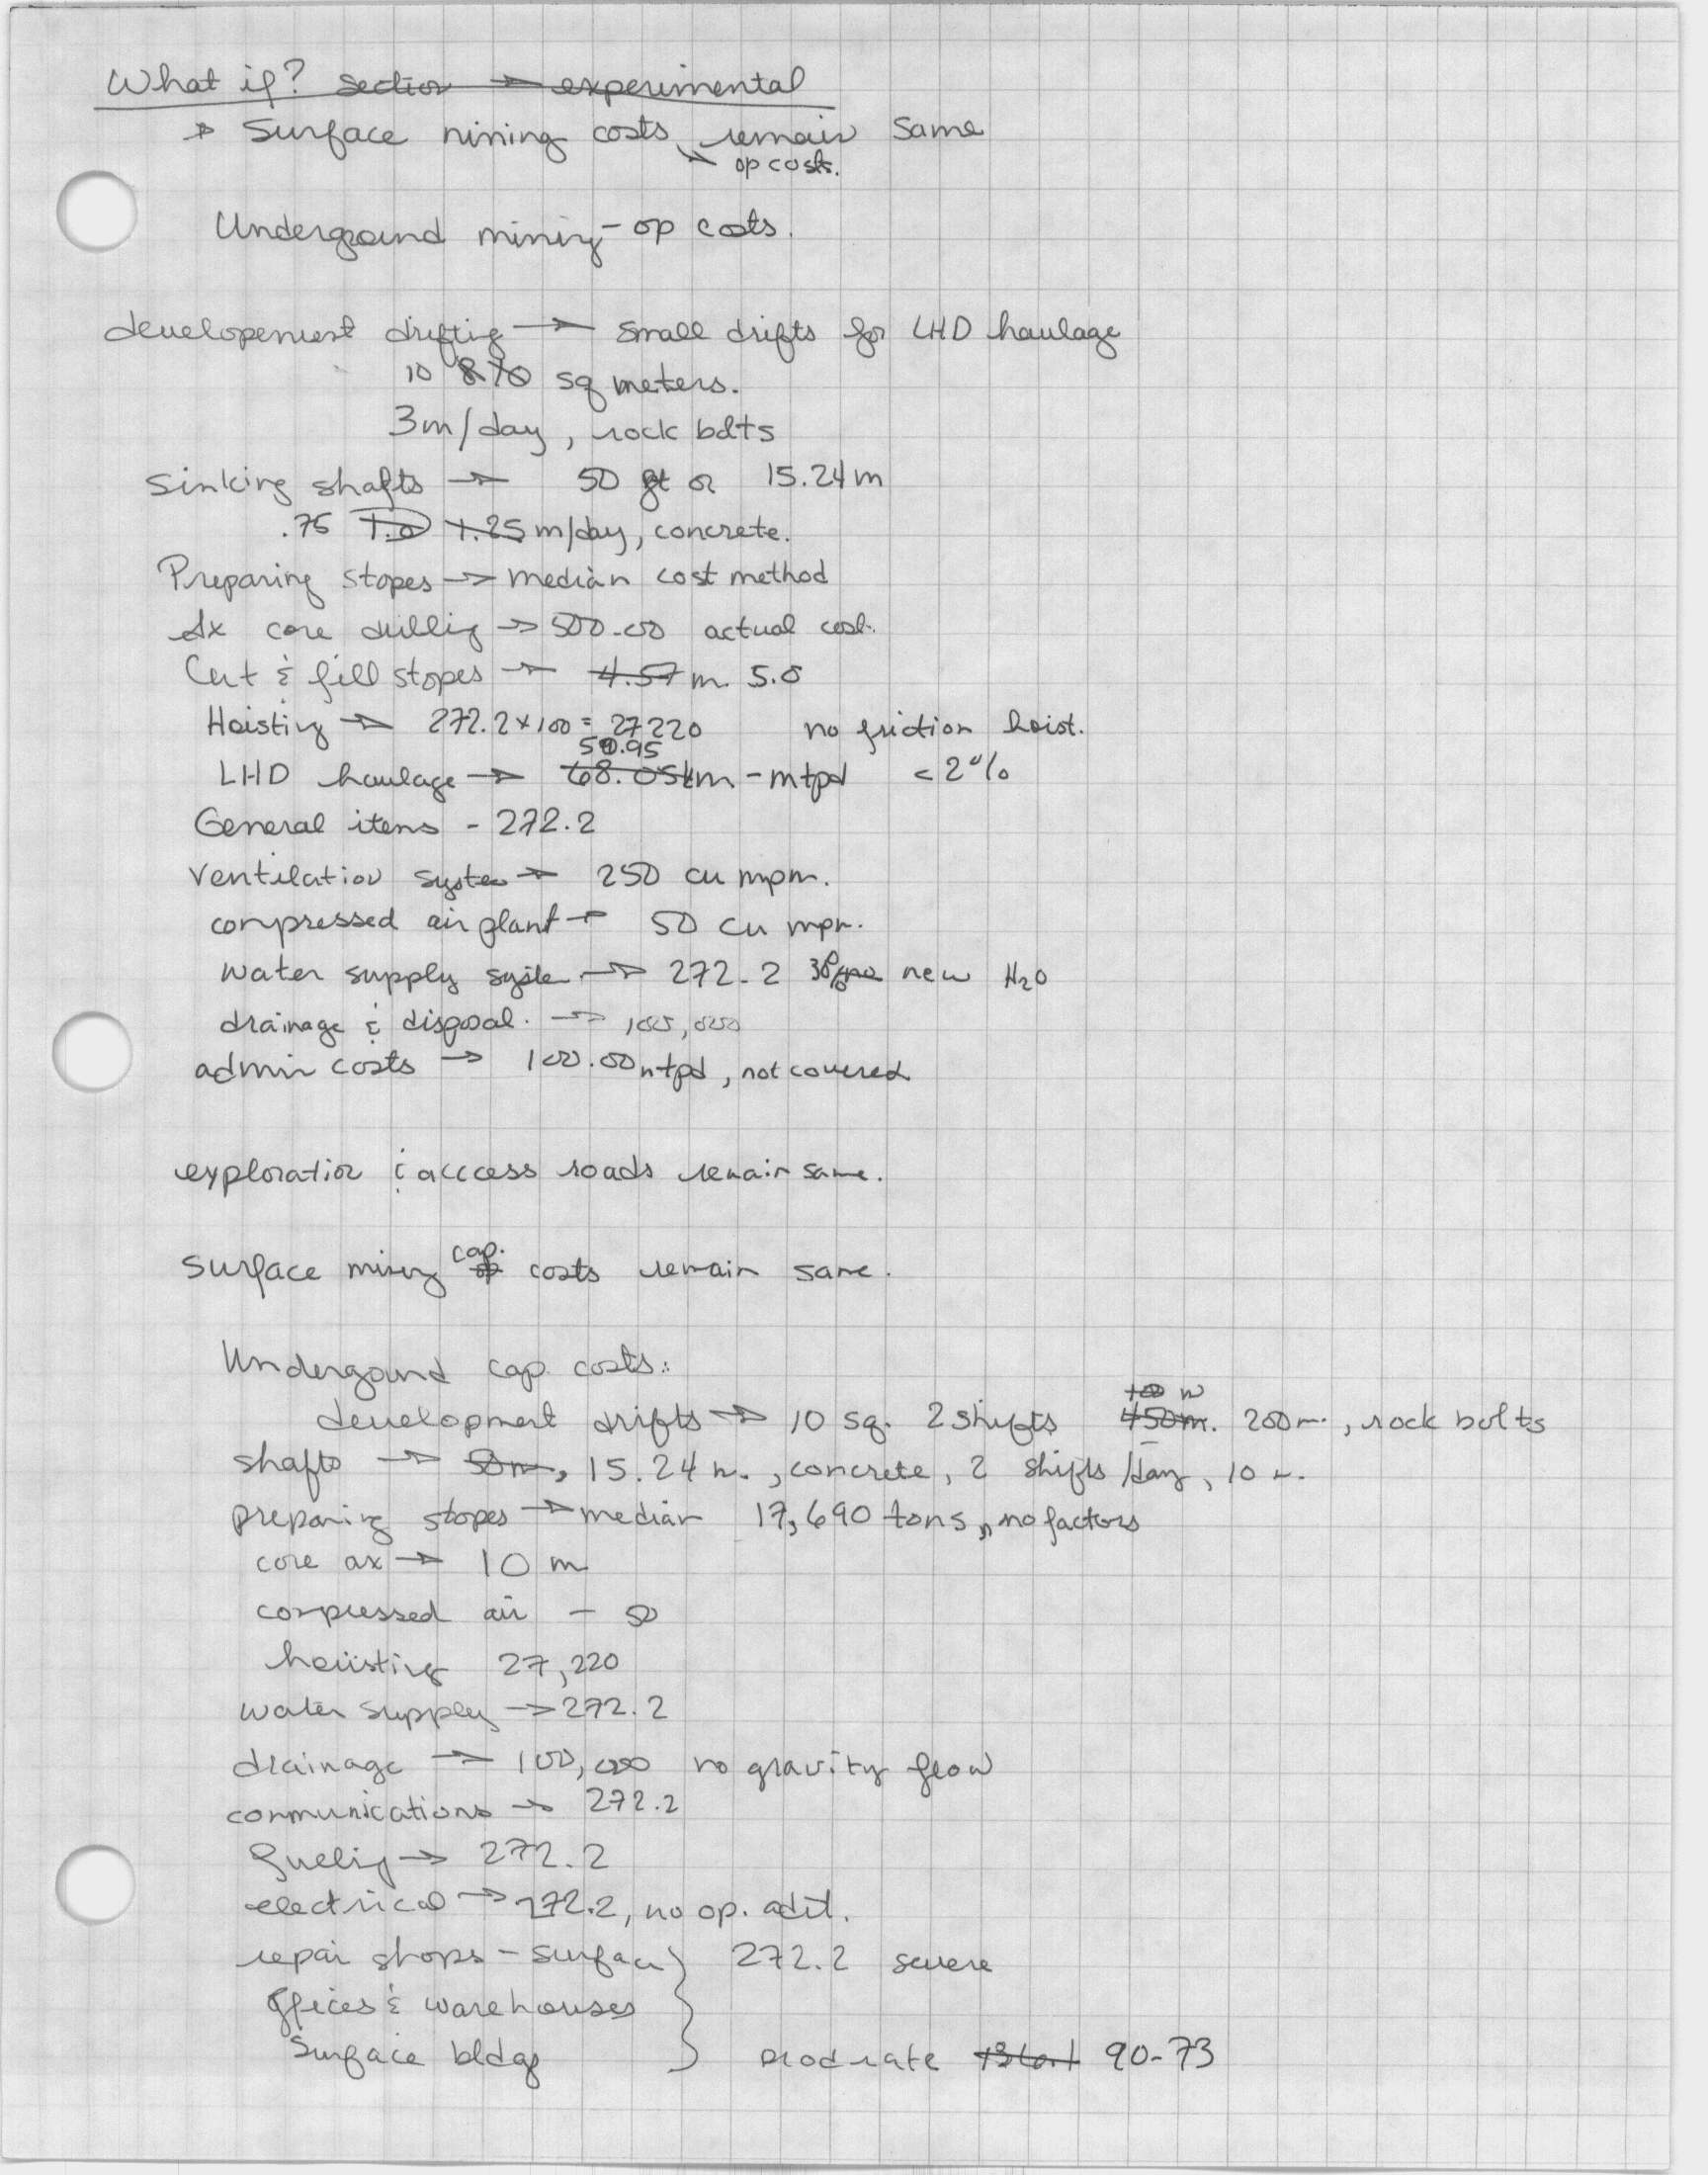 What if? section → experimental
→ Surface mining costs remain same
→ op costs.
Underground mining - op costs.
developement drifting → small drifts for LHD haulage
10 sq meters.
3m/day, rock bolts
Sinking shafts → 50 ft or 15.24m
.75 1.0 1.25 m/day, concrete.
Preparing stopes → median cost method
Ax core drilling → 500.00 actual cost.
Cut & fill stopes → 4.57 m. 5.0
Hoisting → 272.2 x 100 = 27220 no friction hoist.
LHD haulage → 68.05 km - mtpd < 2%
General items - 272.2
Ventilation system → 250 cu mpm.
compressed air plant → 50 cu mpm.
Water supply system → 272.2 new H2O
drainage & disposal. → 100,000
admin costs → 100.00 mtpd, not covered
exploration & acccess roads remain same.
cap.
Surface mining op costs remain same.
Undergound cap. costs:
development drifts → 10 sq. 2 shifts 450m. 200m., rock bolts
shafts → 50m, 15.24 m., concrete, 2 shifts/day, 10 m.
preparing stopes → median 17,690 tons, no factors
core ax → 10 m
compressed air - 50
hoisting 27,220
water supply → 272.2
drainage → 100,000 no gravity flow
communications → 272.2
fueling → 272.2
electrical → 272.2, no op. adit.
repair shops - surface } 272.2 severe
offices & warehouses
Surface bldgs } moderate 90-73